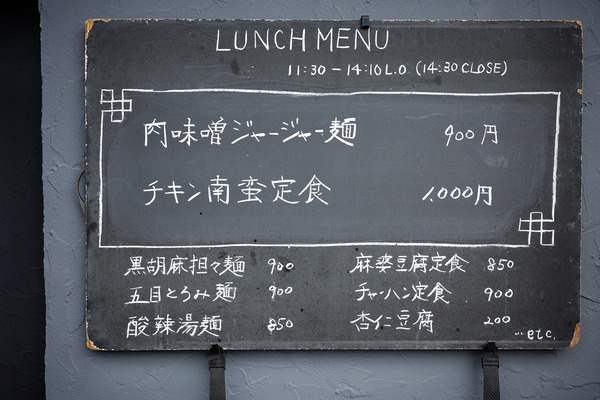 LUNCH MENU
11:30 - 14:10 L.O. (14:30 CLOSE)
肉味噌ジャージャー麺 900円
チキン南蛮定食 1,000円
黒胡麻担々麺 900
五目とろみ麺 900
酸辣湯麺 850
麻婆豆腐定食 850
チャーハン定食 900
杏仁豆腐 200
...etc.